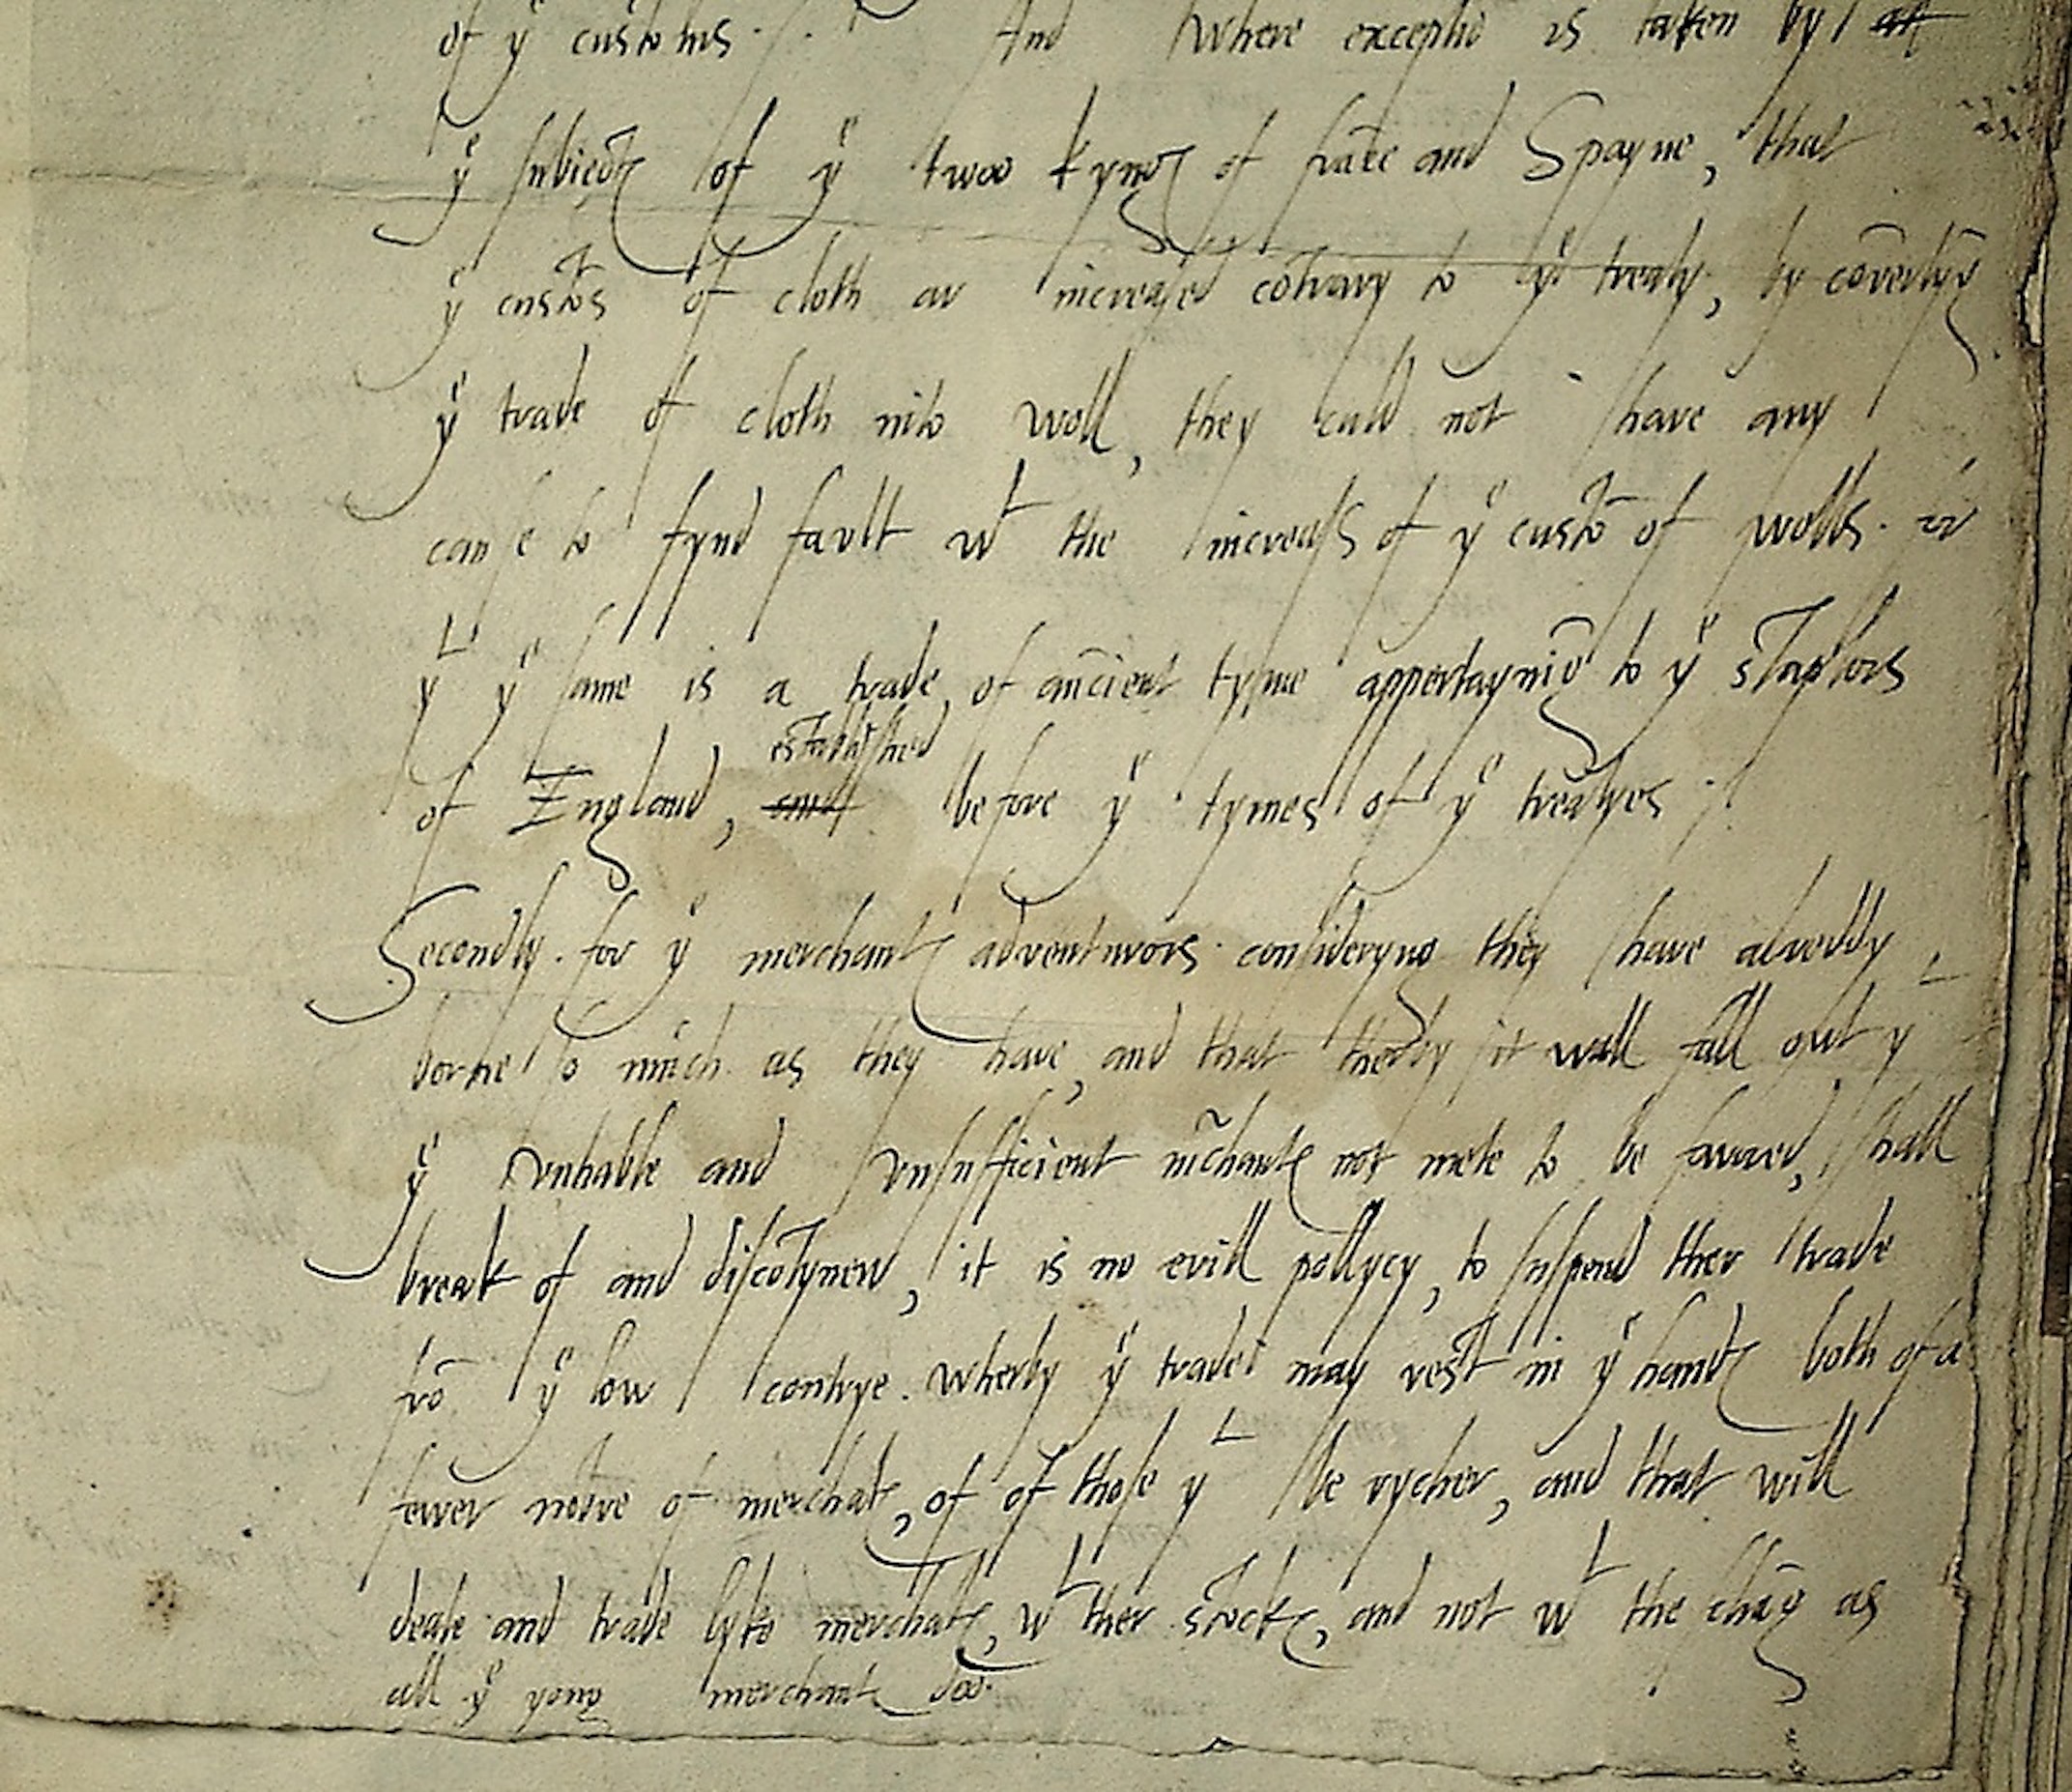 of yͤ customs. And Where exceptiō is taken by all
yͤ subiectꝭ of yͤ twoo kyngꝭ of frāce and Spayne, that
yͤ custōs of cloth ar increased cōtrary to yͤ treaty, by cōvertyg̃
yͤ trade of cloth into woll, they cald not have any
cause to fynd fault wᵗ the increass of yͤ custō of wolls. for
yᵗ yͤ same is a trade of añcient tyme appertaynīg to yͤ staplors
established
of England, and before yͤ tymes of yͤ treatyes
Secondly. for yͤ merchantꝭ adventurors. consideryng they have alreddy
borne so much as they have, and that therby it wall fall out yᵗ
yͤ vnhable and vnsufficient m̃chantꝭ not mete to be favored, shall
break of and discōtynew, it is no evill pollycy, to suspend ther trade
frō yͤ low contrye. wherby yͤ trade may rest in yͤ handꝭ both of a
fewer nōbre of merchātꝭ, of of those yᵗ be rycher, and that will
deale and trade lyke merchātꝭ, wᵗ ther stockꝭ, and not wᵗ the chāg as
all yͤ yong merchantꝭ doo.